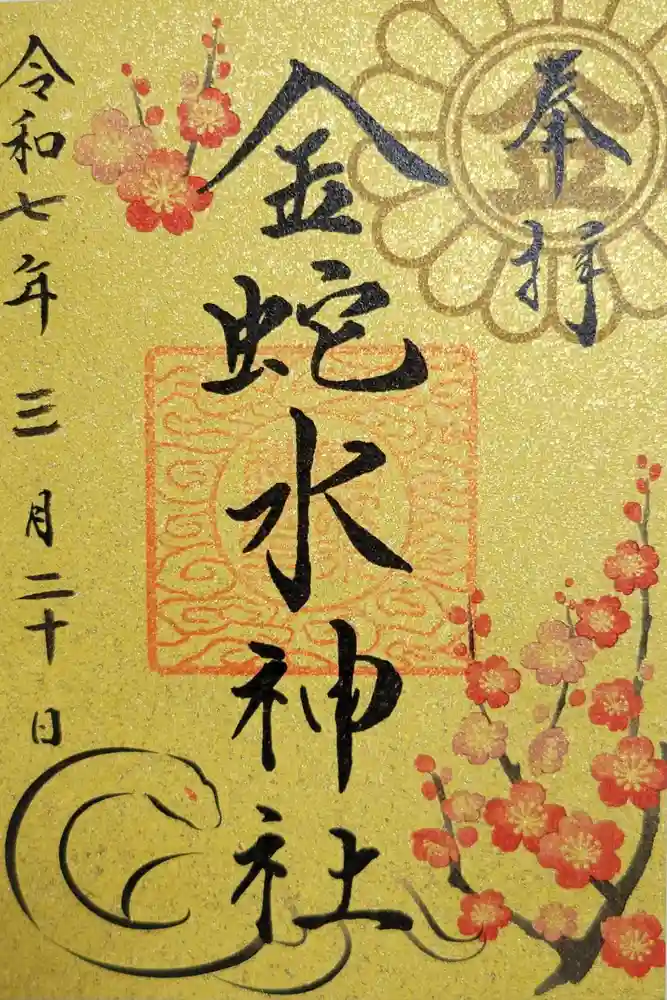 奉拝
金
金蛇水神社
令和七年三月二十日